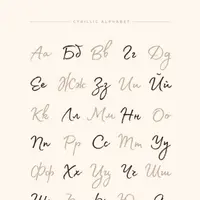 CYRILLIC ALPHABET
Аа Бб Вв Гг Дд
Ее Жж Зз Ии Йй
Кк Лл Мм Нн Оо
Пп Рр Сс Тт Уу
Фф Хх Цц Чч Шш